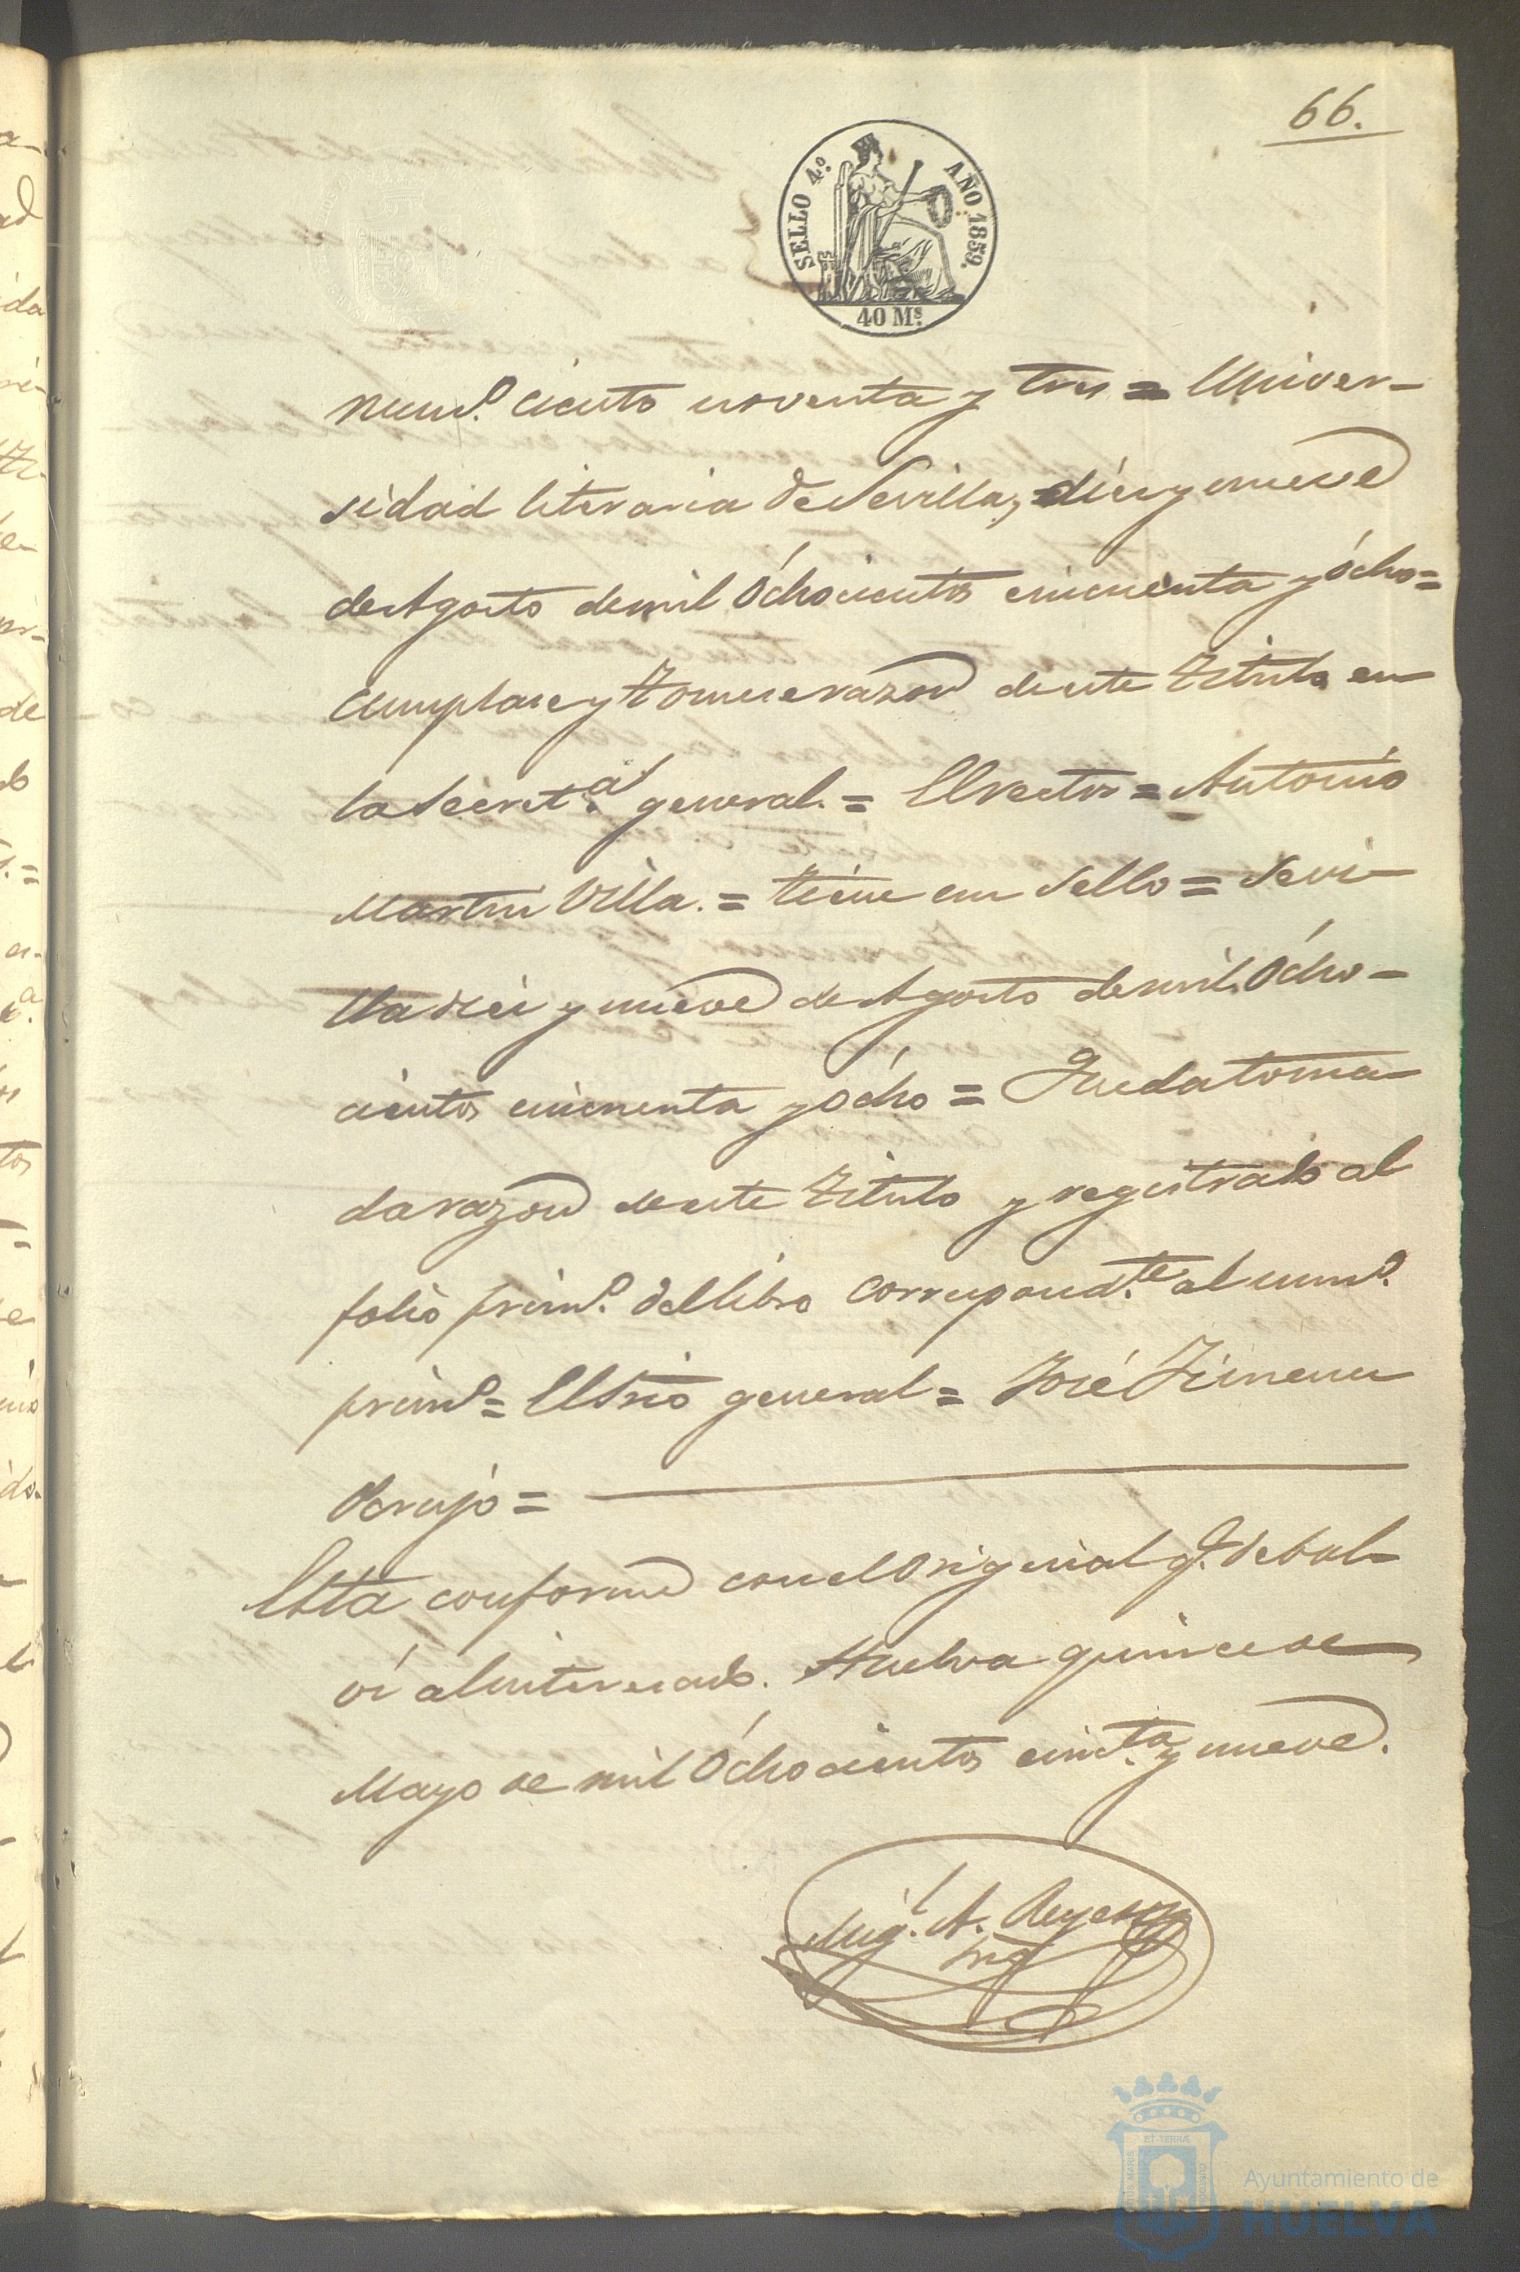 66.
SELLO 4.º AÑO 1859.
40 Ms.
num.º ciento noventa y tres = Univer-
sidad literaria de Sevilla, diez y nueve
de Agosto de mil Ochocientos cincuenta y ócho =
cumplase y tomese razon de este titulo en
la Secret.ª general. = El rector = Antonio
Martin Villa. = tiene un Sello = Sevi-
lla diez y nueve de Agosto de mil Ocho-
cientos cincuenta y ócho = Queda toma-
da razon de este titulo y registrado al
folio prim.º del libro correspond.te al num.º
prim.º = El Srio general = José Jimenez
Obrujo =
Está conforme con el Original q.e debol-
ví al interesado. Huelva quince de
Mayo de mil Ochocientos cinc.ta y nueve.
Mig.l A.
Srio
Ayuntamiento de
HUELVA